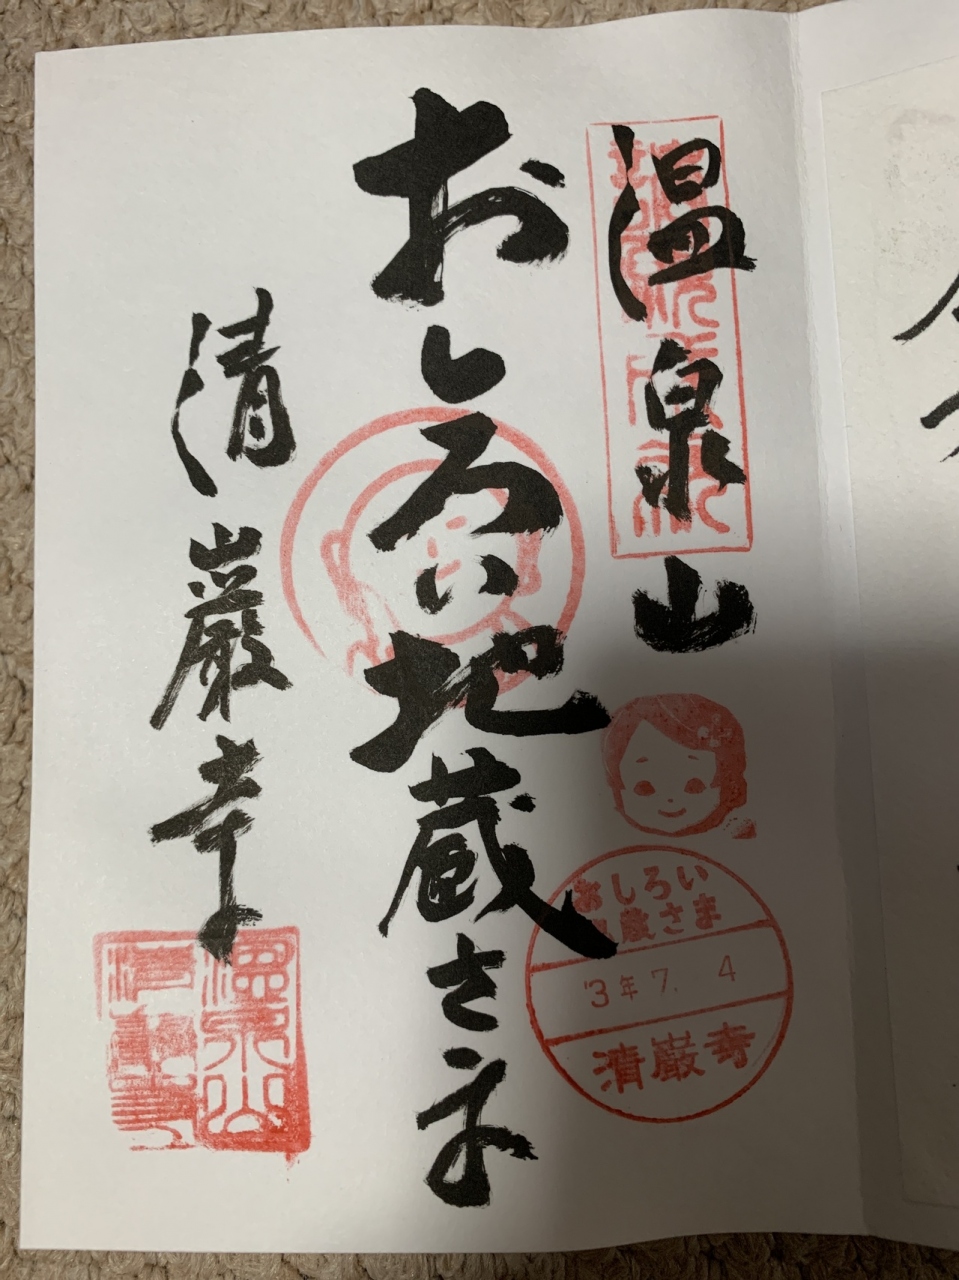 温泉山
おしろい地蔵さま
清巌寺
おしろい
地蔵さま
'3年7.4
清巌寺
温泉山
清巌寺